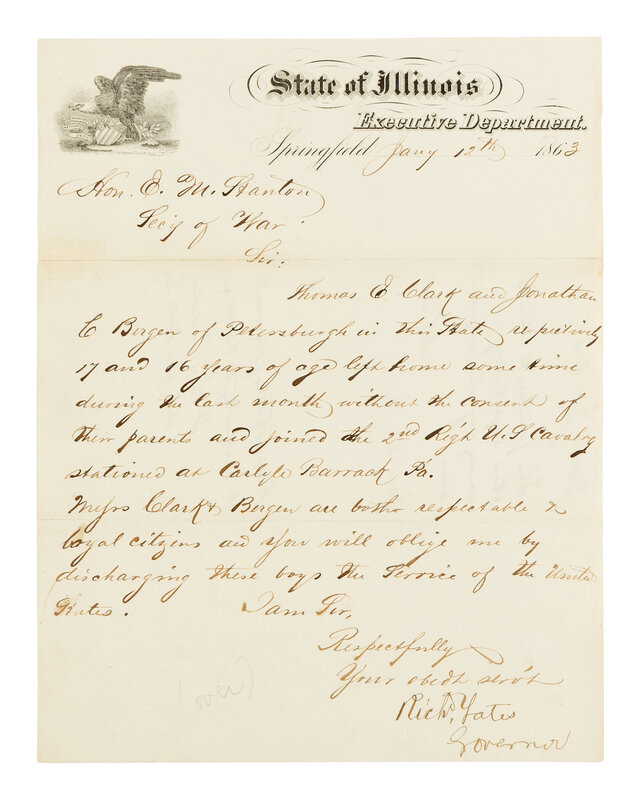 State of Illinois
Executive Department.
Springfield Jany 12th 1863
Hon. E. M. Stanton
Sec'y of War.
Sir.
Thomas E Clark and Jonathan
C Bergen of Petersburgh in this State respectively
17 and 16 years of age left home some time
during the last month without the consent of
their parents and joined the 2nd Reg't U. S Cavalry
stationed at Carlyle Barrack Pa.
Messrs Clark & Bergen are both respectable &
loyal citizens and you will oblige me by
discharging these boys the Service of the United
States. I am Sir,
Respectfully
Your obedt serv't
Richd. Yates
Governor
(over)